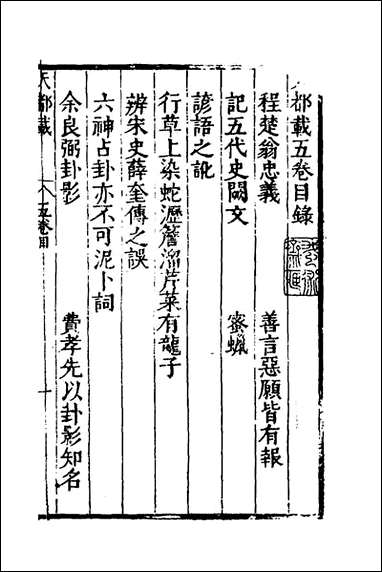 都載五卷目錄
程楚翁忠義　善言惡願皆有報
記五代史闕文　蜜蠟
諺語之訛
行草上染蛇瀝簷溜芹菜有龍子
辨宋史薛奎傳之誤
六神占卦亦不可泥卜詞
余良弼卦影　費孝先以卦影知名
天都載　五卷目　一